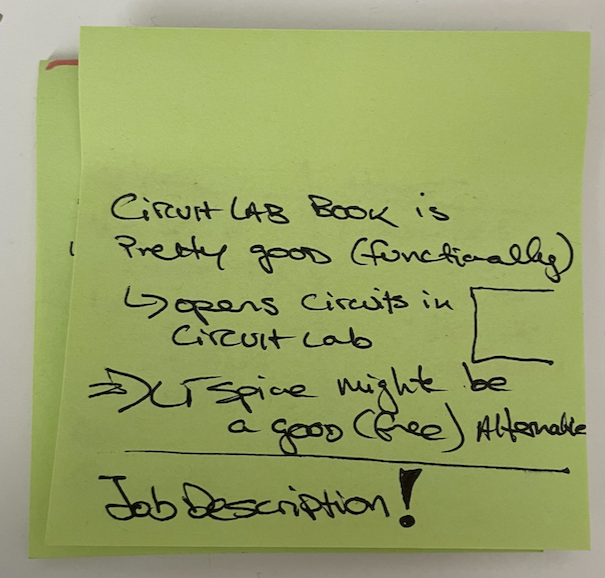 Circuit LAB Book is
Pretty good (functionally)
↳ opens circuits in
Circuit Lab
⇒ LTSpice might be
a good (free) Alternable
Job Description!